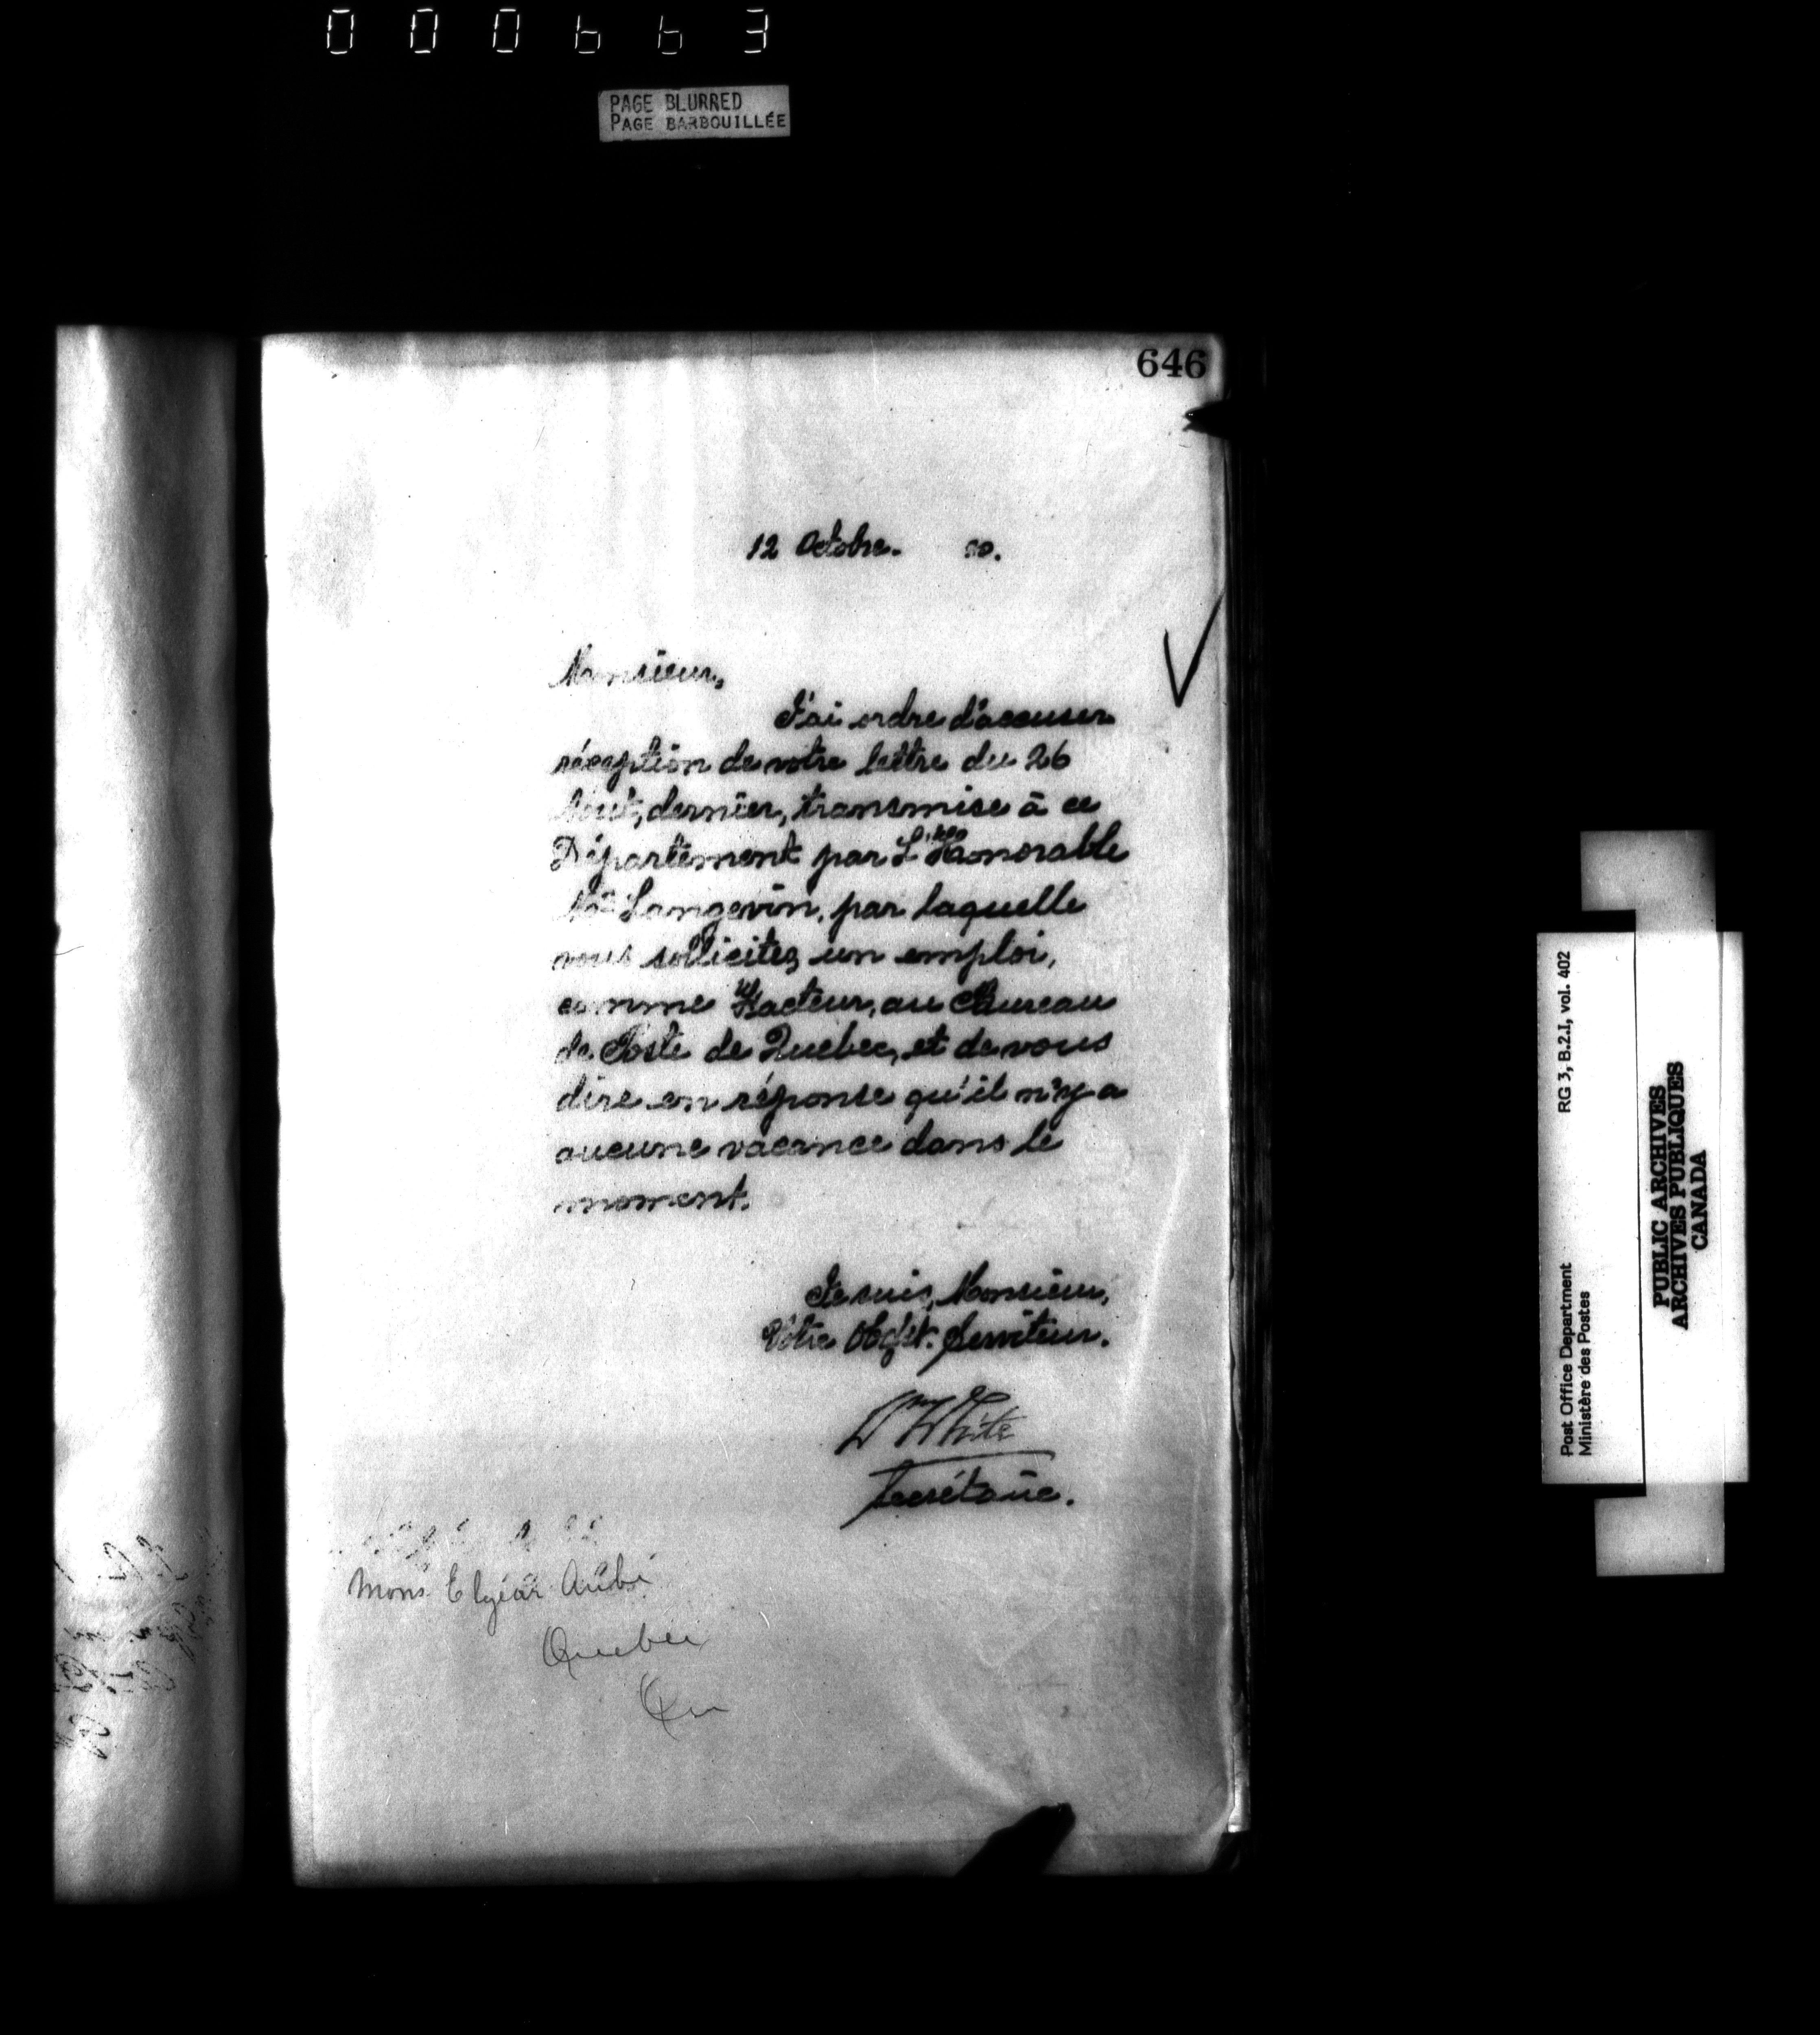 000663
PAGE BLURRED
PAGE BARBOUILLÉE
646
12 Octobre. 80.
Monsieur,
J'ai ordre d'accuser
réception de votre lettre du 26
Août, dernier, transmise à ce
Département par L'Honorable
Mr. Langevin, par laquelle
vous sollicitez un emploi,
comme Facteur, au Bureau
de Poste de Quebec, et de vous
dire en réponse qu'il n'y a
aucune vacance dans le
moment.
Je suis, Monsieur,
Votre Obést. Serviteur.
Wm White
Secrétaire.
Mons. Elzéar Aubé
Quebec
Que
RG 3, B.2.I, vol. 402
Post Office Department
Ministère des Postes
PUBLIC ARCHIVES
ARCHIVES PUBLIQUES
CANADA